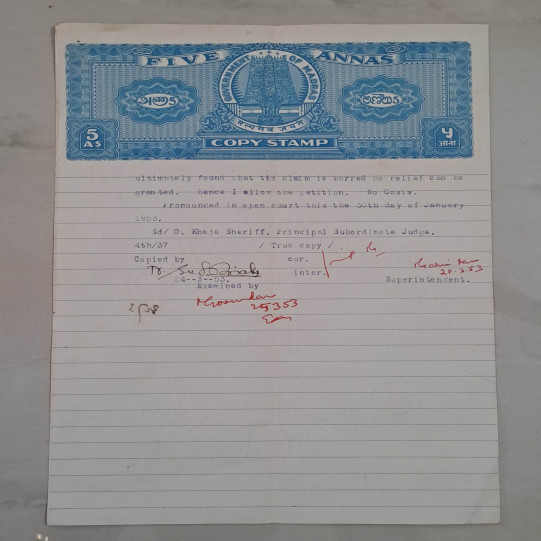 FIVE ANNAS
GOVERNMENT OF MADRAS
அணா 5
सत्यमेव जयते
5
AS
५
आना
COPY STAMP
ultimately found that the claim is barred no relief can be
granted. Hence I allow the petition. No Costs.
Pronounced in open court this the 30th day of January
1953.
Sd/ G. Khaja Sheriff, Principal Subordinate Judge.
4th/37 / True copy /
Copied by cor.
inter.
20.3.53
Superintendent.
24--3--53.
Examined by
25353